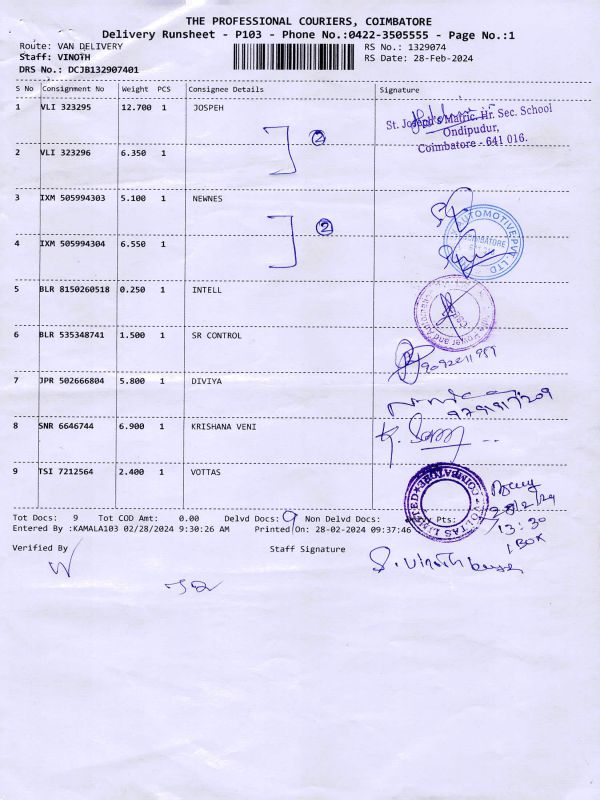 THE PROFESSIONAL COURIERS, COIMBATORE
Delivery Runsheet - P103 - Phone No.:0422-3505555 - Page No.:1
Route: VAN DELIVERY RS No.: 1329074
Staff: VINOTH RS Date: 28-Feb-2024
DRS No.: DCJB132907401
S No Consignment No Weight PCS Consignee Details Signature
1 VLI 323295 12.700 1 JOSPEH
St. Joseph's Matric. Hr. Sec. School
Ondipudur,
Coimbatore - 641 016.
2 VLI 323296 6.350 1
2
3 IXM 505994303 5.100 1 NEWNES
AUTOMOTIVE PVT. LTD
COIMBATORE
4 IXM 505994304 6.550 1
2
5 BLR 8150260518 0.250 1 INTELL
Power and Automation
6 BLR 535348741 1.500 1 SR CONTROL
7 JPR 502666804 5.800 1 DIVIYA
8 SNR 6646744 6.900 1 KRISHANA VENI
9 TSI 7212564 2.400 1 VOTTAS
VOLTAS LIMITED COIMBATORE
28/2/24
13:30
1 BOX
Tot Docs: 9 Tot COD Amt: 0.00 Delvd Docs: 9 Non Delvd Docs: Pts:
Entered By :KAMALA103 02/28/2024 9:30:26 AM Printed On: 28-02-2024 09:37:46
Verified By Staff Signature
S. Vinoth